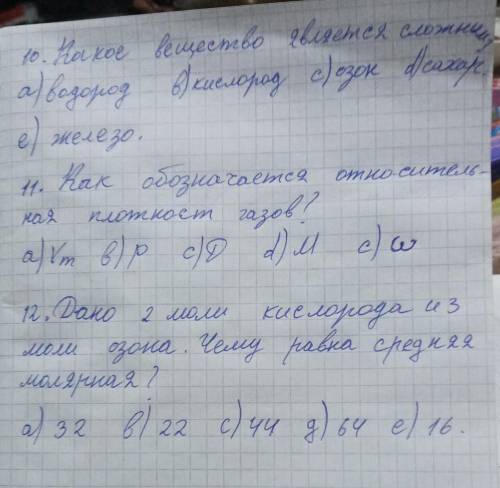 10. Какое вещество является сложным
а) водород в) кислород с) озон d) сахар
е) железо.
11. Как обозначается относитель-
ная плотност газов?
а) Vm в) p с) D d) M с) ω
12. Дано 2 моли кислорода и 3
моли озона. Чему равна средняя
молярная?
а) 32 в) 22 с) 44 д) 64 е) 16.